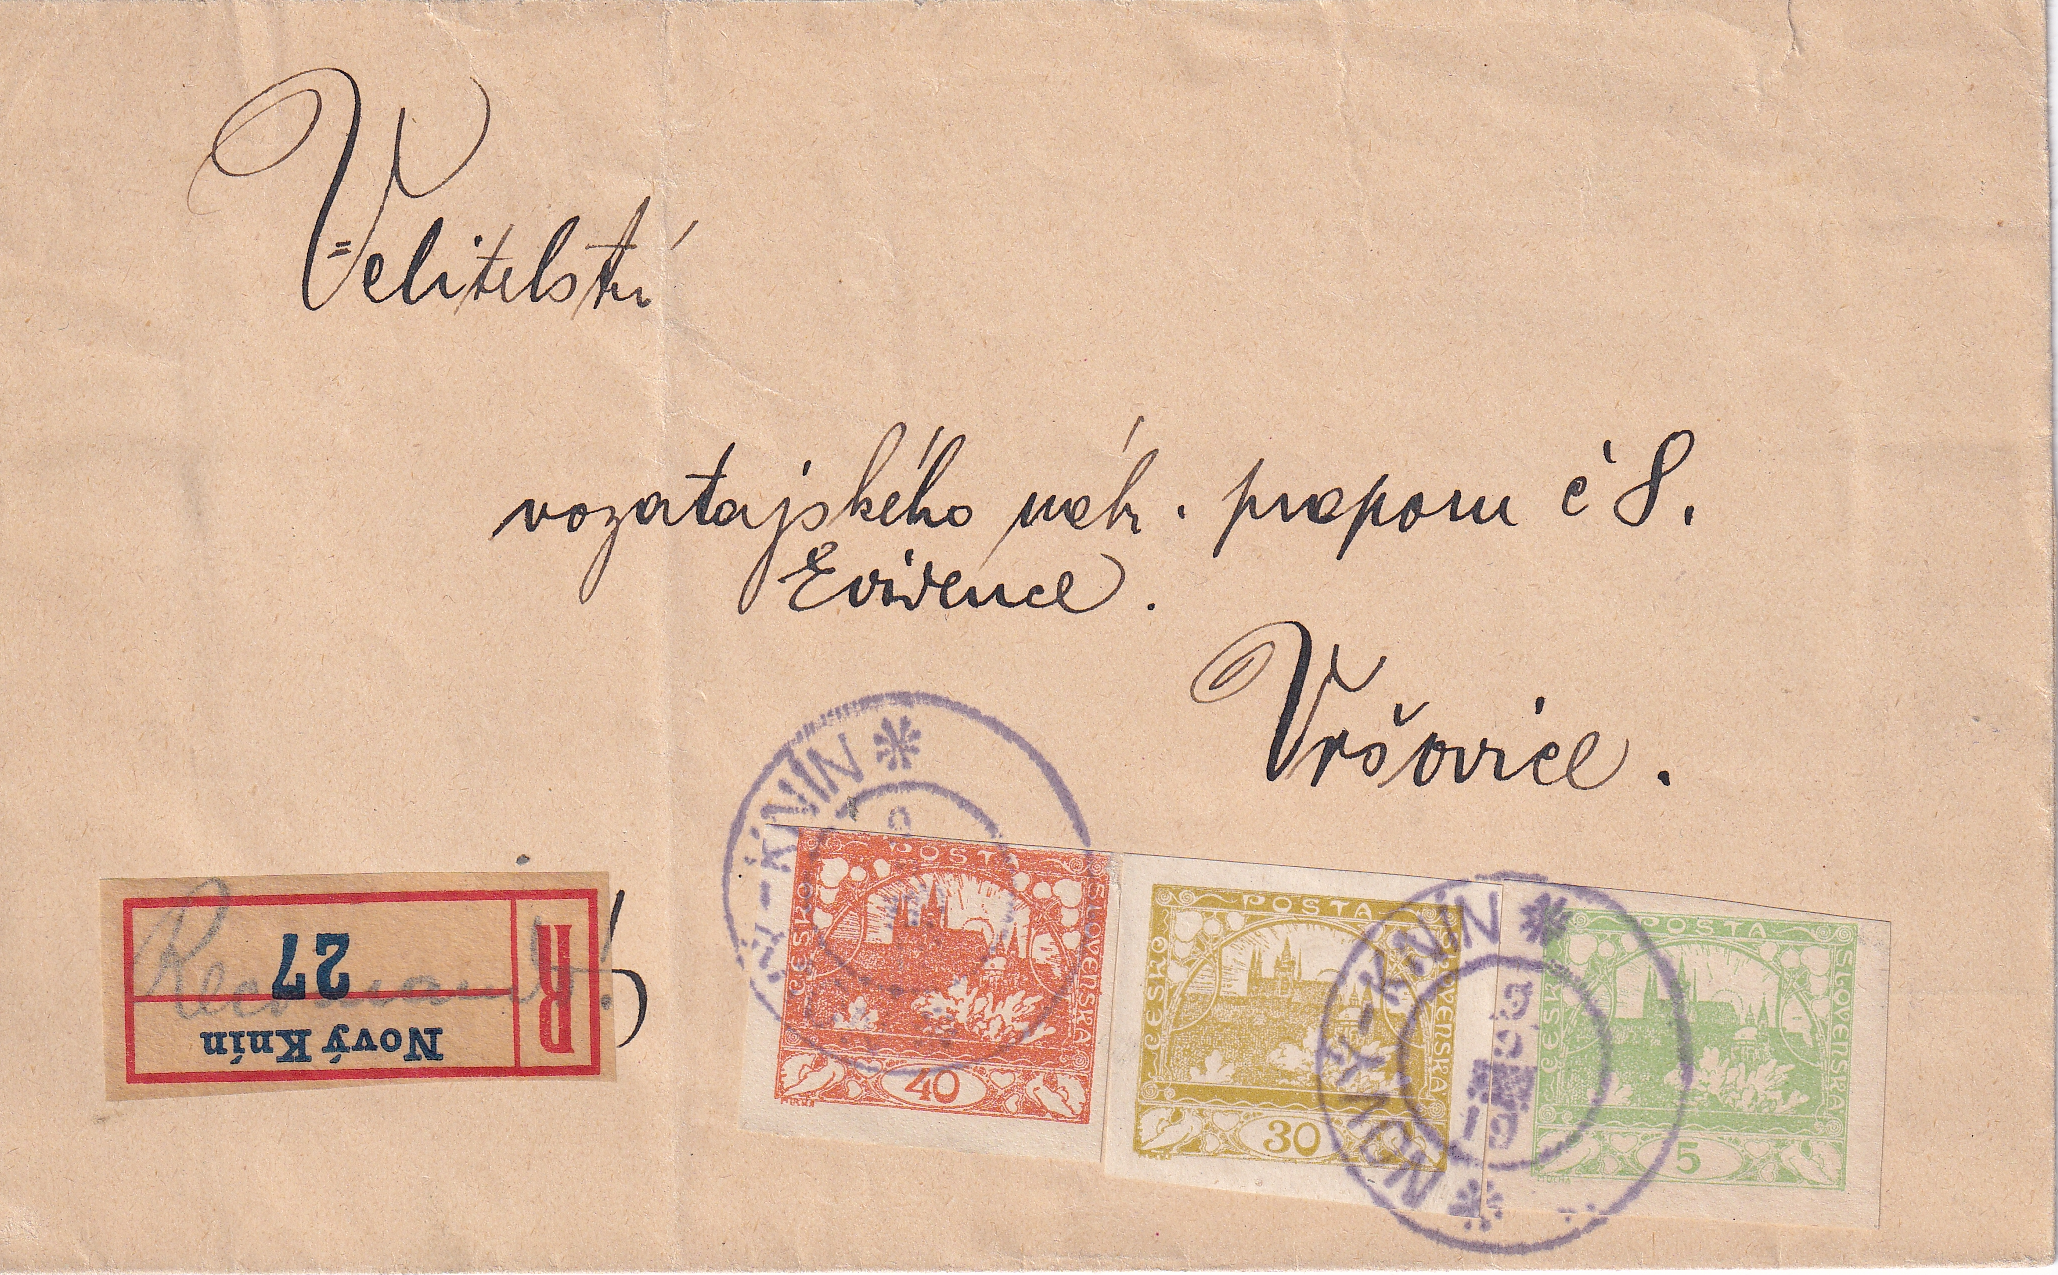 Velitelství
vozatajského náhr. praporu č 8.
Evidence.
Vršovice.
NOVÝ-KNÍN
R
27
Nový Knín
POŠTA
ČESKO
SLOVENSKÁ
40
MUCHA
POŠTA
ČESKO
SLOVENSKÁ
30
POŠTA
ČESKO
SLOVENSKÁ
5
MUCHA
NOVÝ-KNÍN